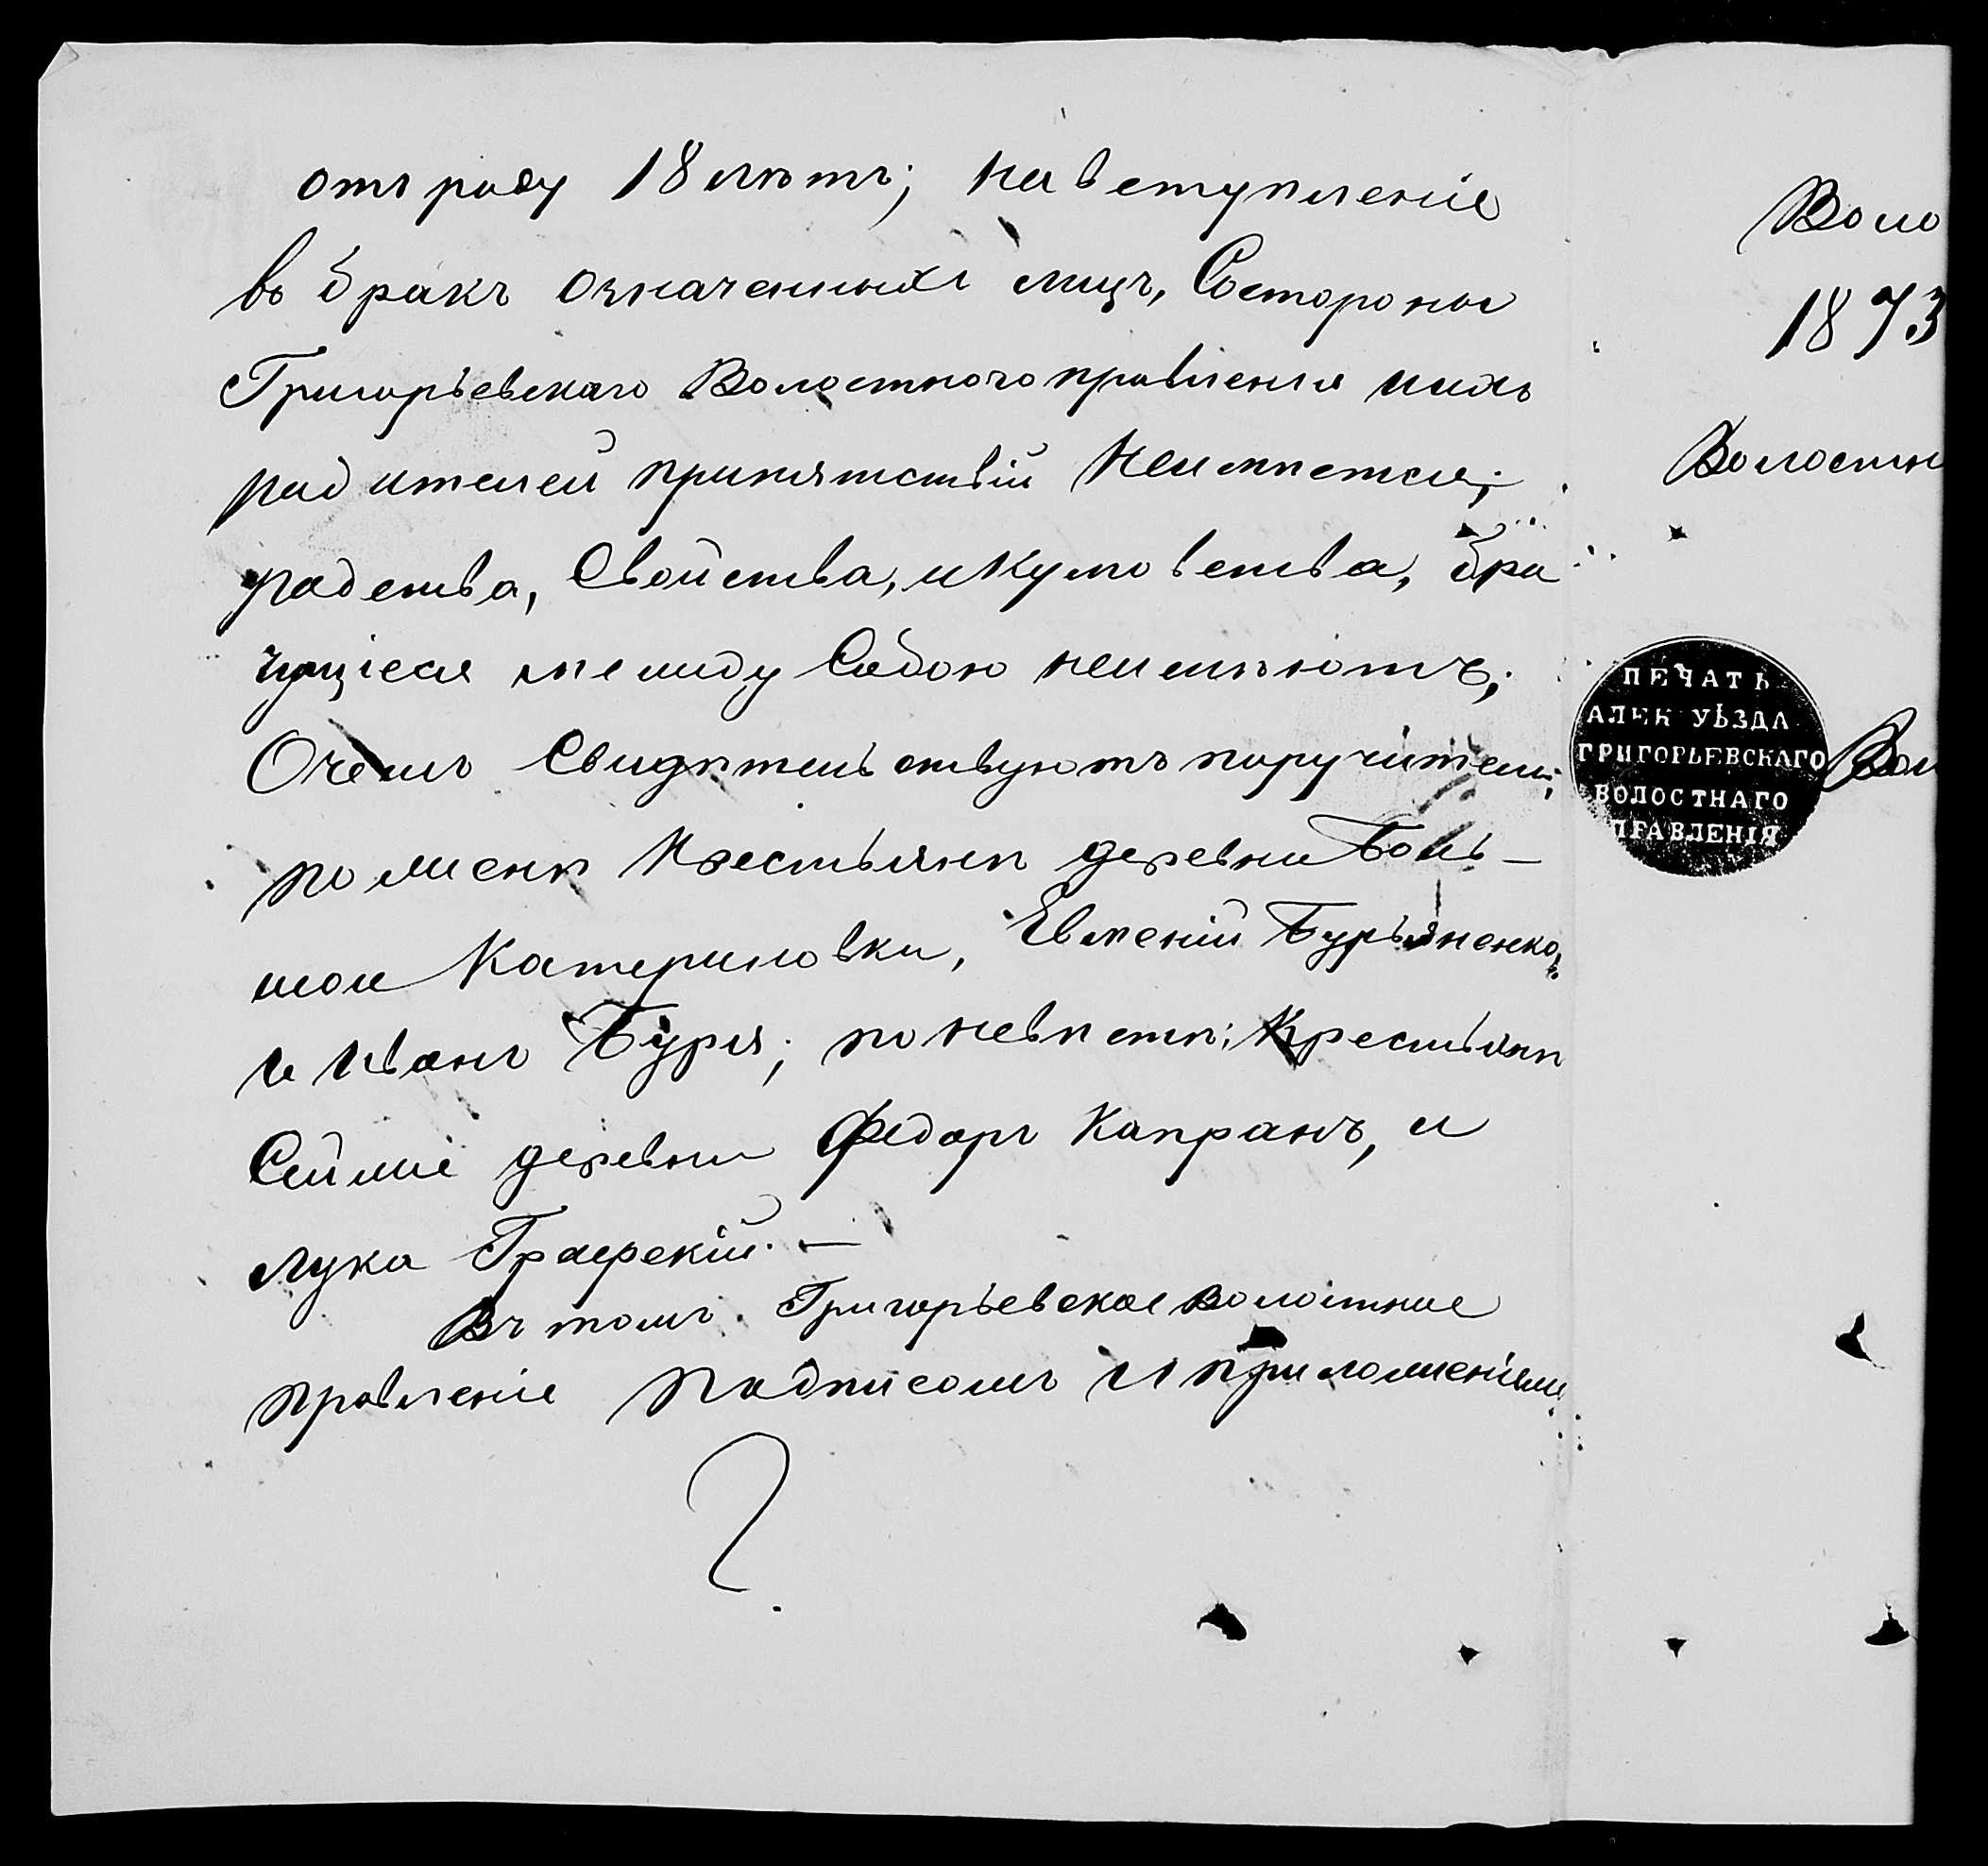 отъ роду 18 лѣтъ; На вступленіе
въ бракъ означенныхъ лицъ, Состороны
Григорьевскаго Волостного правленія ихъ
родителей припятствій Неимѣется;
родства, Свойства, и Кумовства, бра
чущіеся между Собою неимѣютъ;
Очемъ Свидѣтельствуютъ поручители;
по женихѣ Крестьяни деревни Боль-
шой Катериновки, Евменій Бурьяненко,
и Иванъ Буря; по невѣстѣ: Крестьяни
Сейже деревни Федоръ Капранъ, и
Лука Графскій. —
Въ томъ. Григорьевское Волостное
правленіе подписомъ и приложеніемъ
Воло
1873
Волостн
Вол
ПЕЧАТЬ
АЛЕК УѢЗДА
ГРИГОРЬЕВСКАГО
ВОЛОСТНАГО
ПРАВЛЕНІЯ